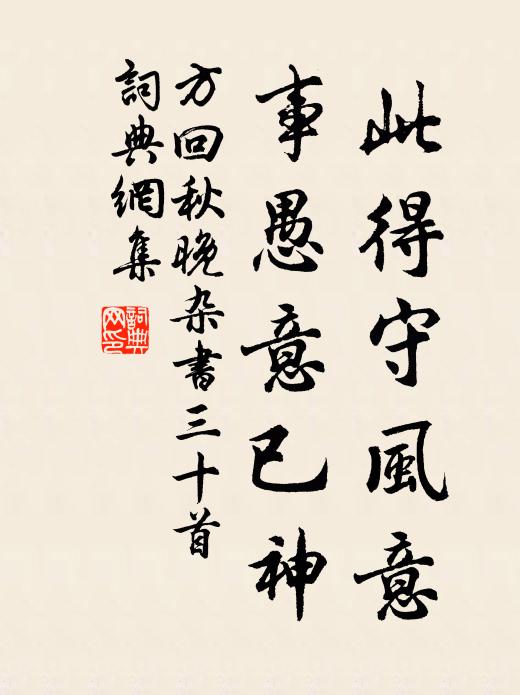 此得守風意
事愚意已神
方回秋晚杂書三十首
詞典網集
詞典網印